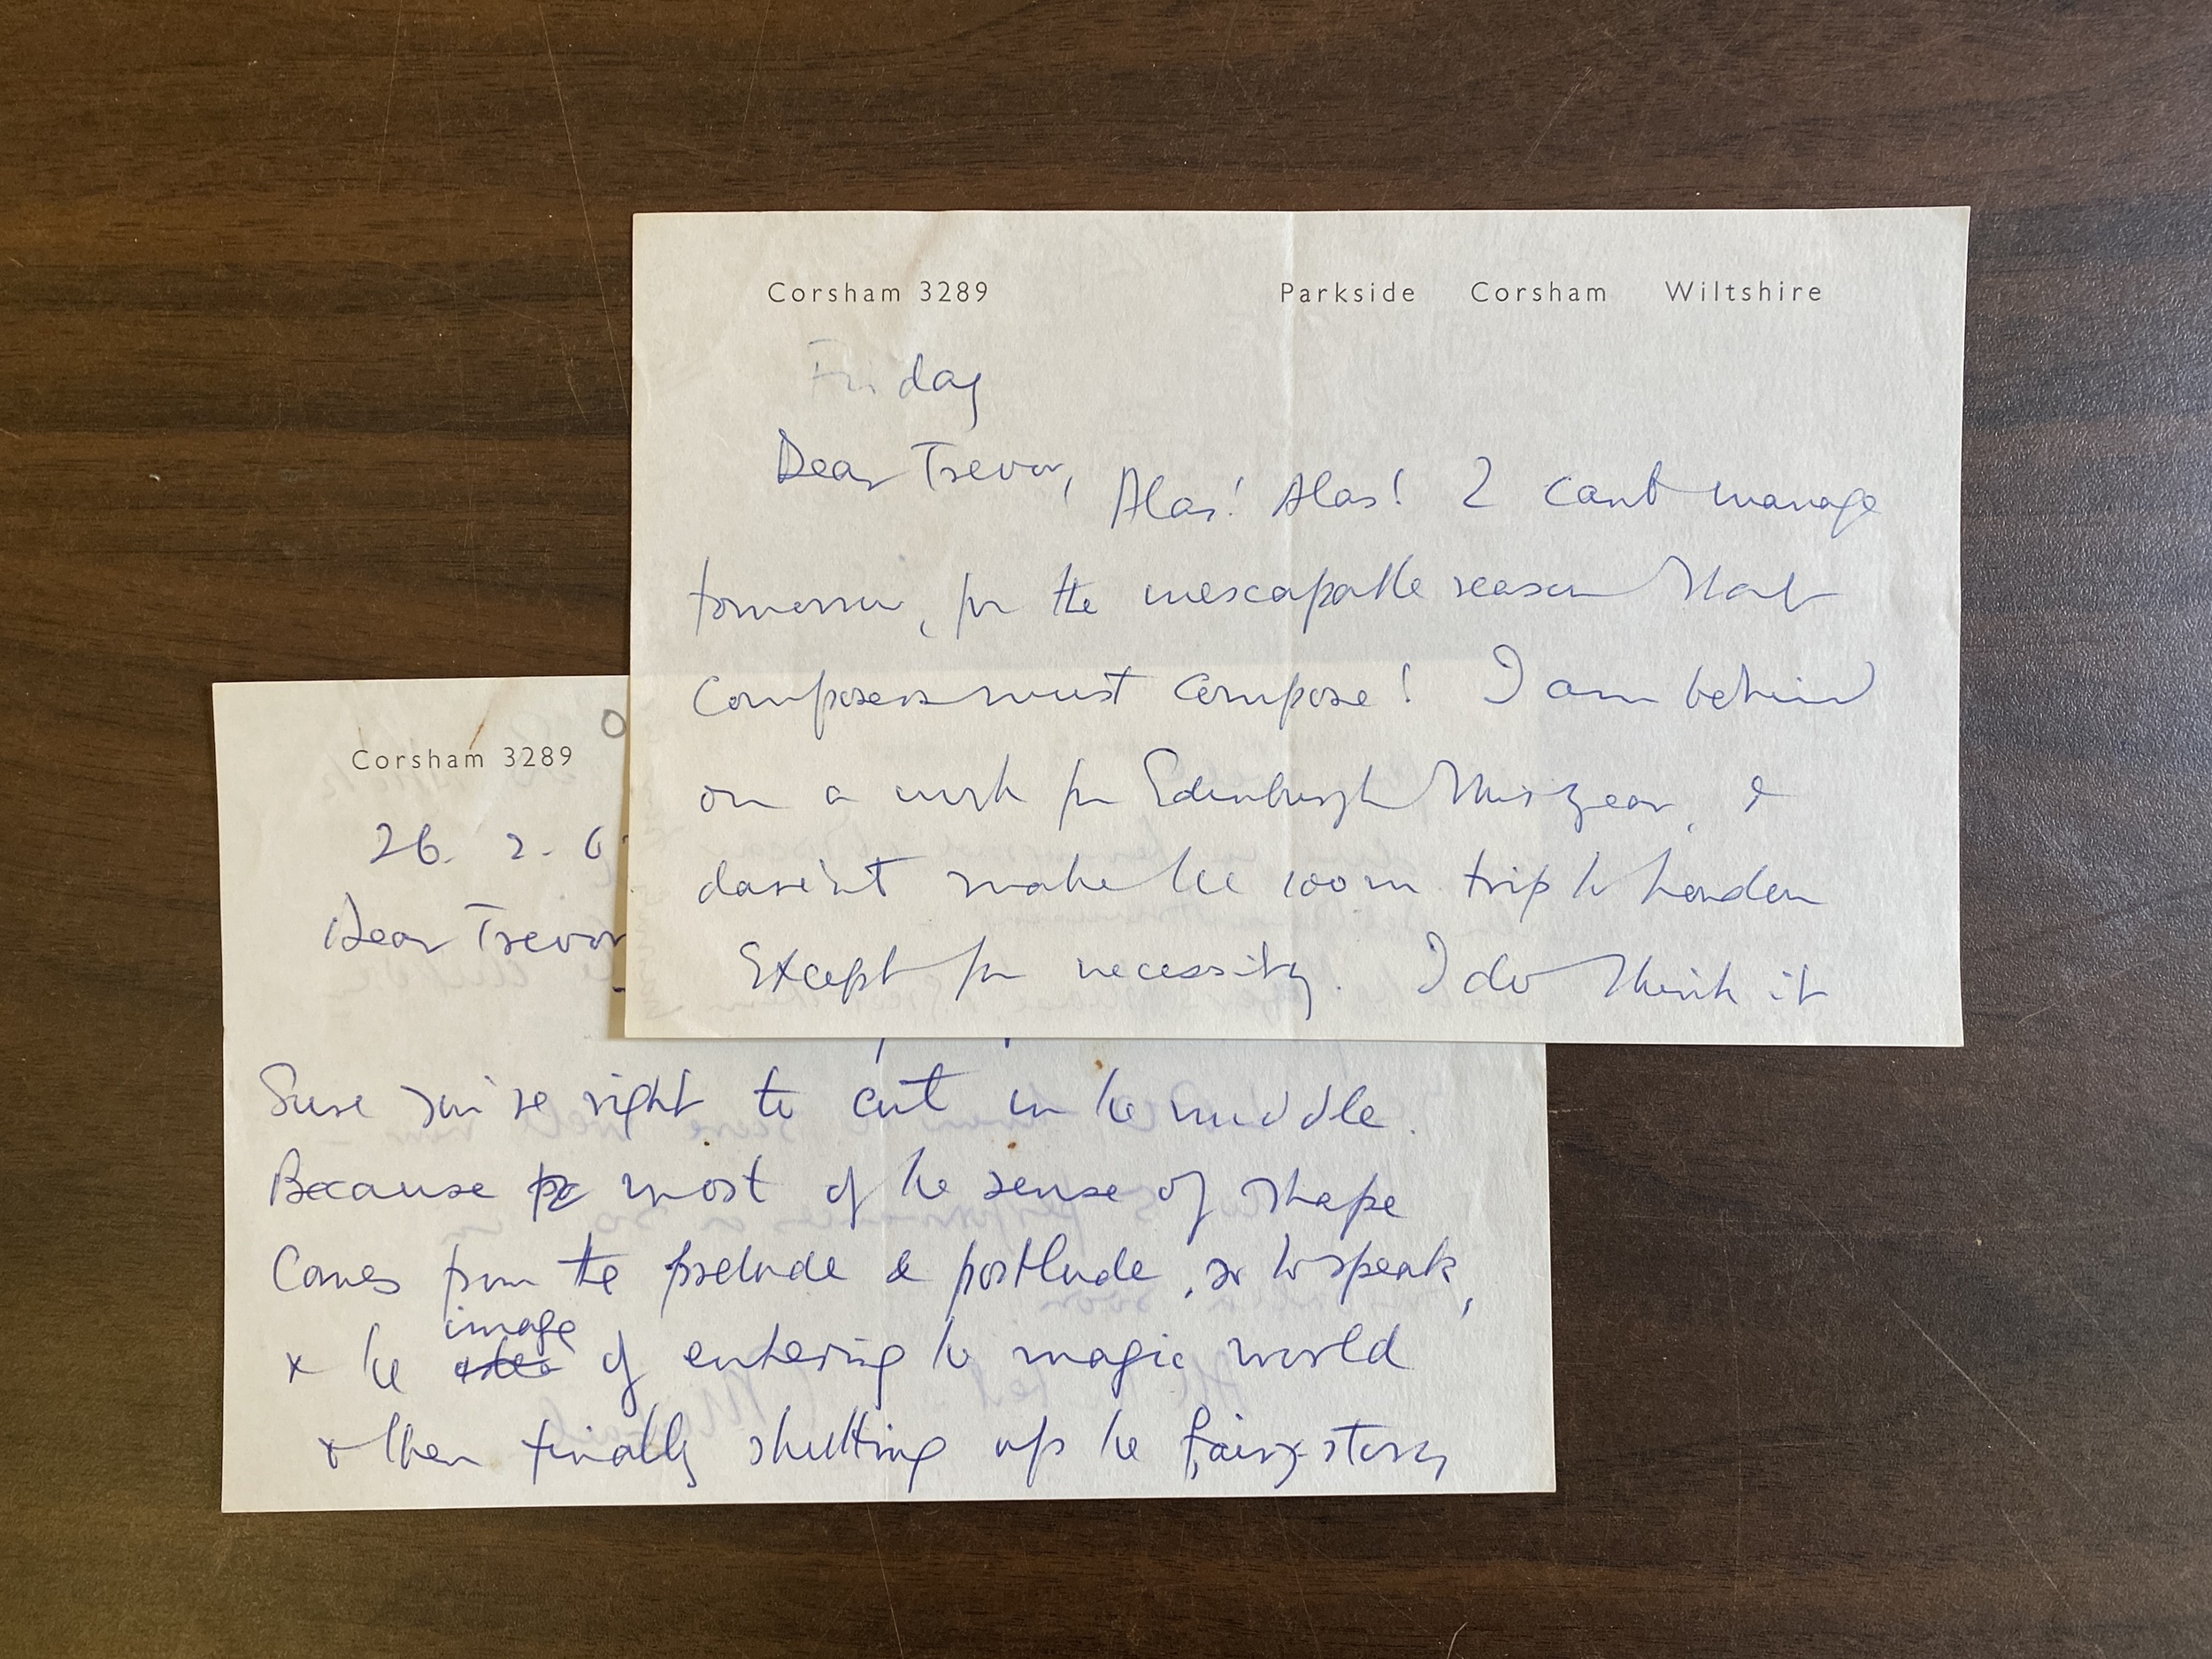 Corsham 3289 Parkside Corsham Wiltshire
Friday
Dear Trevor,
Alas! Alas! I can't manage
tomorrow, for the inescapable reason that
composers must compose! I am behind
on a work for Edinburgh this year, &
daren't make the 100 m trip to London
except for necessity. I do think it
Corsham 3289
26. 2. 6
Dear Trevor
Sure you're right to cut in the middle.
Because most of the sense of shape
comes from the prelude & postlude, so to speak,
image
& the of entering the magic world
& then finally shutting up the fairy-story